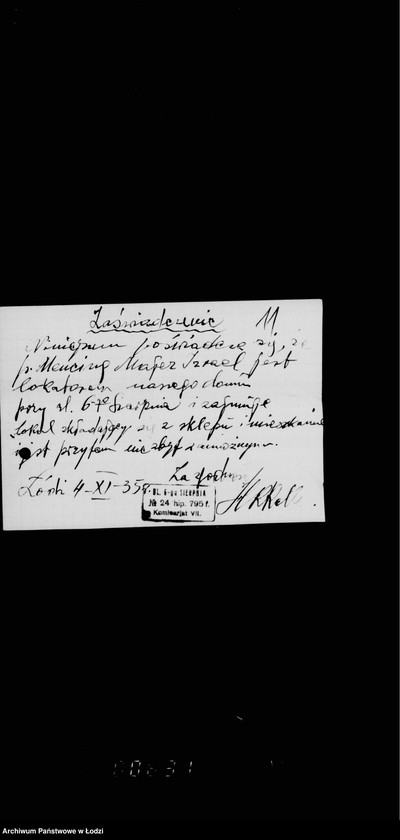 11
Zaświadczenie
Niniejszem poświadcza się, że
p. Mencing Majer Izrael jest
lokatorem naszego domu
przy ul. 6-go Sierpnia i zajmuje
lokal składający się z sklepu i mieszkania
i jest przytem niezbyt zamożnym.
Za
Łódź 4-XI-35r.
UL. 6-go SIERPNIA
№ 24 hip. 795 f.
Komisarjat VII.
Archiwum Państwowe w Łodzi